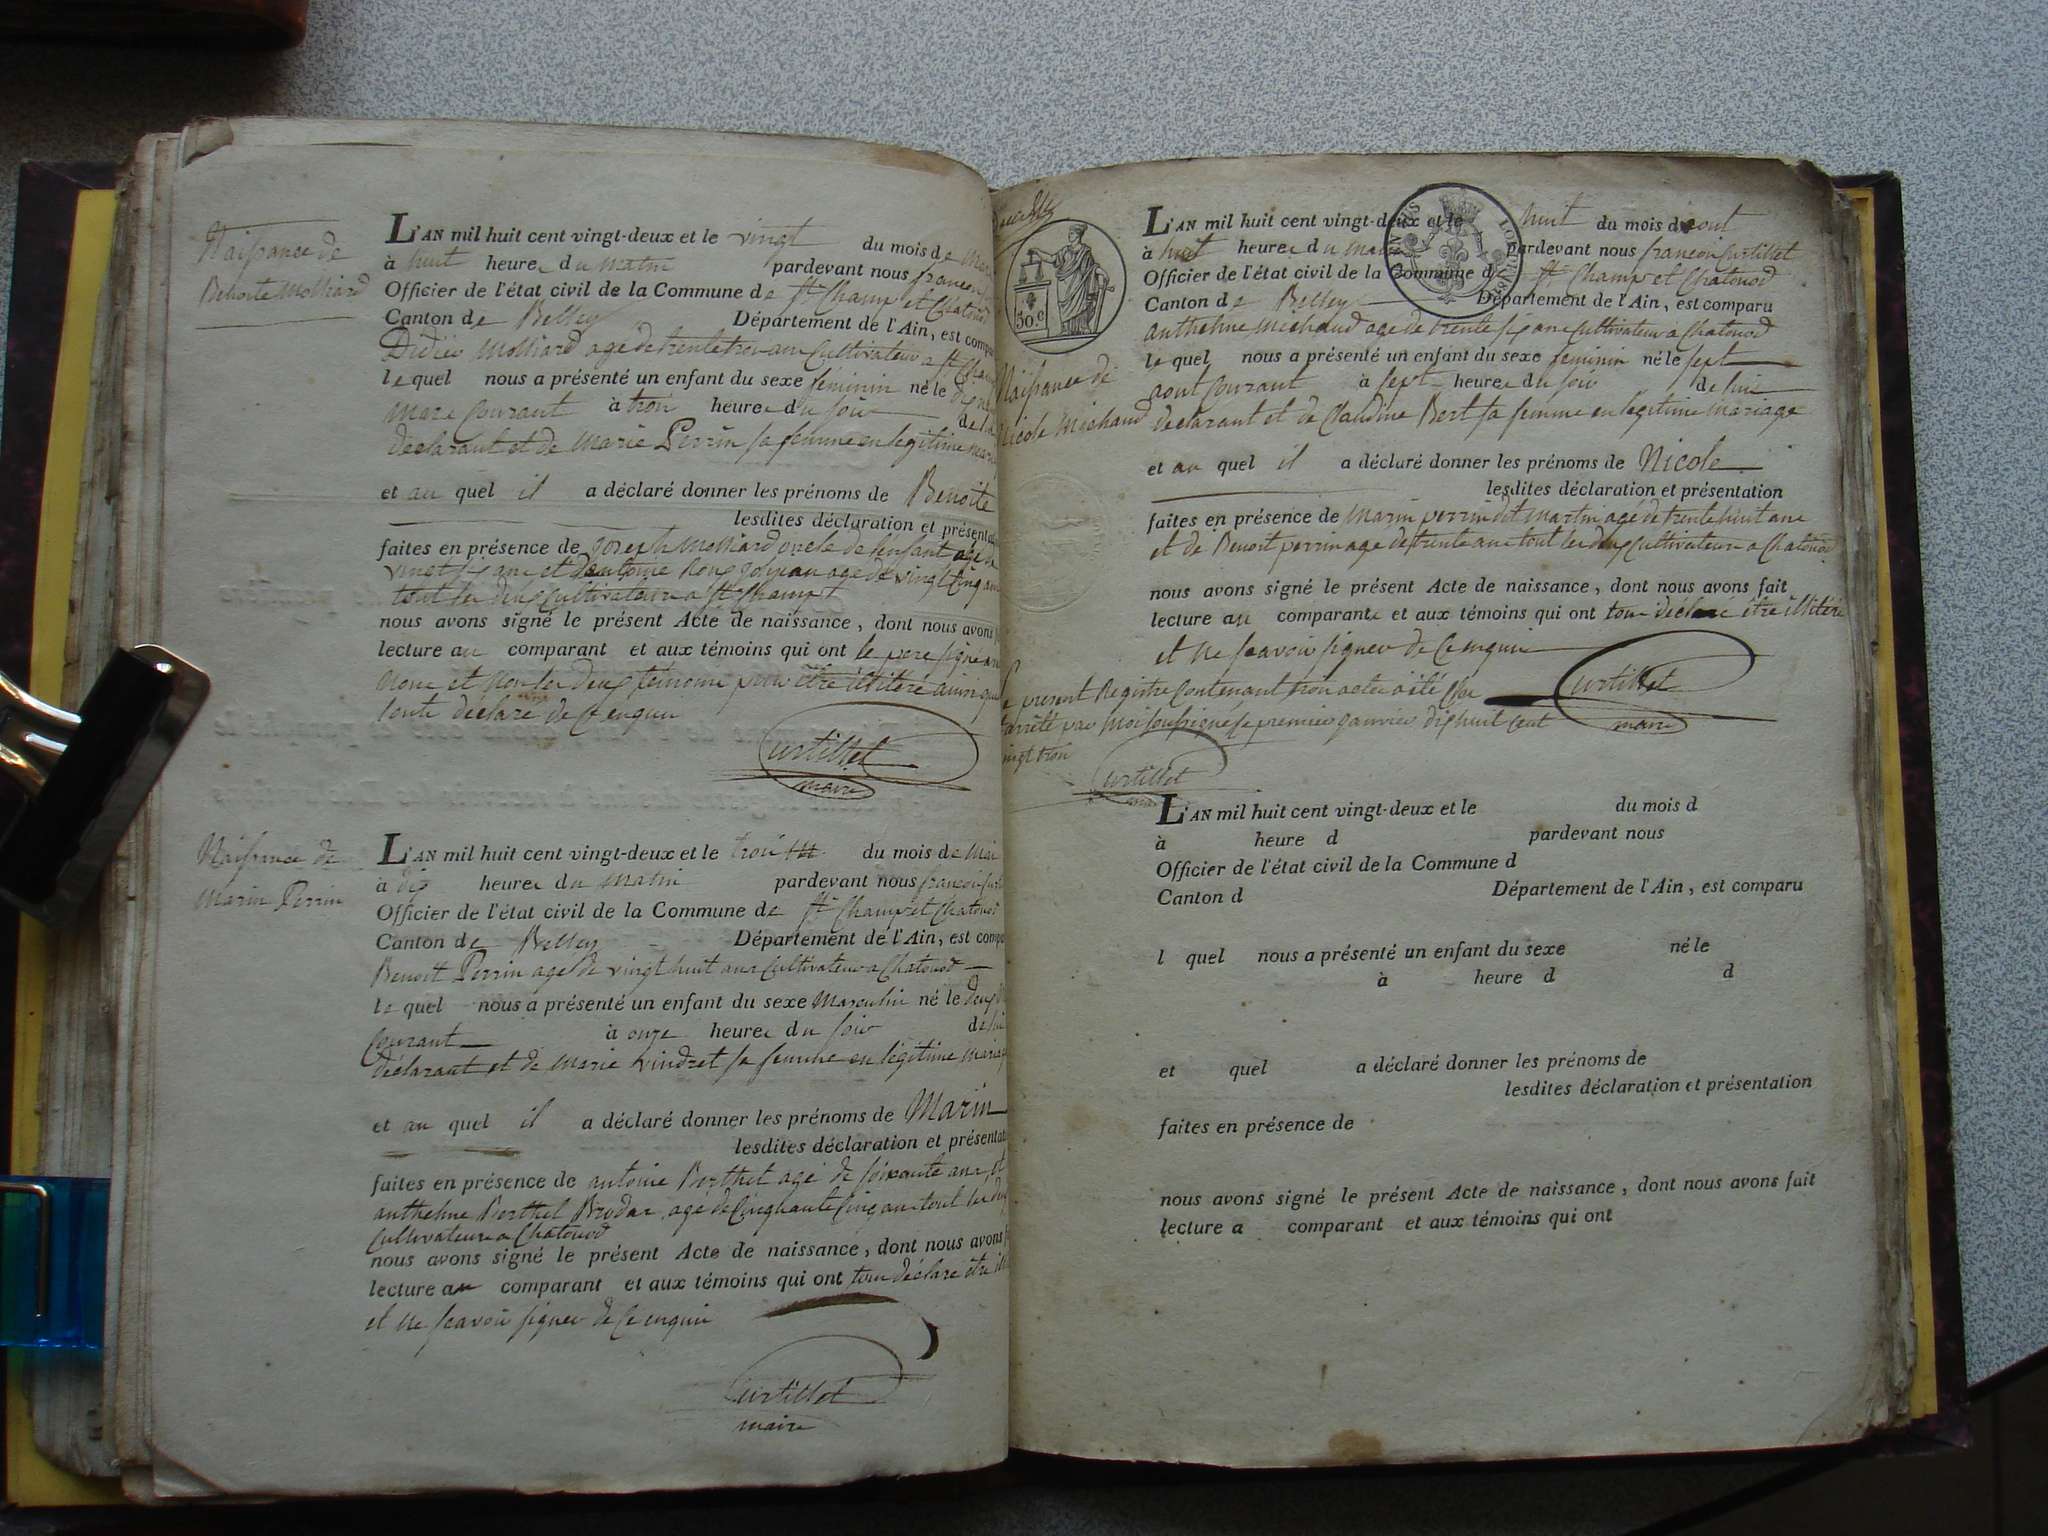 Naissance de
Benoite Molliard
L'AN mil huit cent vingt-deux et le vingt du mois de Mar
à huit heures du matin pardevant nous francois
Officier de l'état civil de la Commune de St Champ et Chatonod
Canton de Belley Département de l'Ain, est compa
Didier Molliard age de trente trois ans Cultivateur a St Cham
le quel nous a présenté un enfant du sexe féminin né le dix neu
Mars Courant à trois heures du soir de lui
declarant et de Marie Perrin sa femme en legitime mari
et au quel il a déclaré donner les prénoms de Benoite
lesdites déclaration et présentat
faites en présence de Joseph Molliard oncle de lenfant age de
vingt six ans et Dantoine Roux age de vingt cinq ans
tout les deux Cultivateurs a St Champ
nous avons signé le présent Acte de naissance, dont nous avons
lecture au comparant et aux témoins qui ont le pere signé av
nous et non les deux témoins pour être illiteré ainsi que
lont déclaré de Ce enquis
Curtillet
maire
Naissance de
Marin Perrin
L'AN mil huit cent vingt-deux et le trois du mois de Mai
à dix heures du matin pardevant nous francois Curti
Officier de l'état civil de la Commune de St Champ et Chatonod
Canton de Belley Département de l'Ain, est compa
Benoit Perrin age de vingt huit ans Cultivateur a Chatonod
le quel nous a présenté un enfant du sexe Masculin né le deux
Courant à onze heures du soir de lui
déclarant et de Marie Vindret sa femme en légitime Maria
et au quel il a déclaré donner les prénoms de Marin
lesdites déclaration et présentat
faites en présence de antoine Berthet agé de soixante ans et
anthelme Berthet Brodar agé de Cinquante Cinq ans tout les deux
Cultivateurs a Chatonod
nous avons signé le présent Acte de naissance, dont nous avons f
lecture au comparant et aux témoins qui ont tous déclaré être ill
et ne scavoir signer de Ce enquis
Curtillet
maire
50.c
L'AN mil huit cent vingt-deux et le huit du mois daout
à huit heures du matin pardevant nous francois Curtillet
Officier de l'état civil de la Commune de St Champ et Chatonod
Canton de Belley Département de l'Ain, est comparu
anthelme Michaud age de trente six ans Cultivateur a Chatonod
le quel nous a présenté un enfant du sexe féminin né le sept
aout Courant à sept heures du soir de lui
Naissance de
Nicole Michaud
declarant et de Claudine Bert sa femme en légitime Mariage
et au quel il a déclaré donner les prénoms de Nicole
lesdites déclaration et présentation
faites en présence de Marin perrin dit martin agé de trente huit ans
et de Benoit perrin age de trente ans tout les deux Cultivateurs a Chatonod
nous avons signé le présent Acte de naissance, dont nous avons fait
lecture au comparants et aux témoins qui ont tous déclaré être illitéré
et ne scavoir signer de Ce enquis
Curtillet
maire
Le present Registre Contenant trois actes a été Clos
et arrêté par Moi soussigné le premier janvier dix huit Cent
vingt trois
Curtillet
L'AN mil huit cent vingt-deux et le du mois d
à heure d pardevant nous
Officier de l'état civil de la Commune d
Canton d Département de l'Ain, est comparu
l quel nous a présenté un enfant du sexe né le
à heure d d
et quel a déclaré donner les prénoms de
lesdites déclaration et présentation
faites en présence de
nous avons signé le présent Acte de naissance, dont nous avons fait
lecture a comparant et aux témoins qui ont